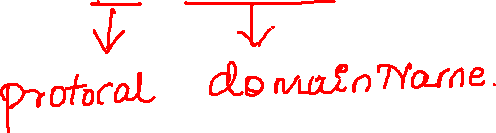 protocal domainName.